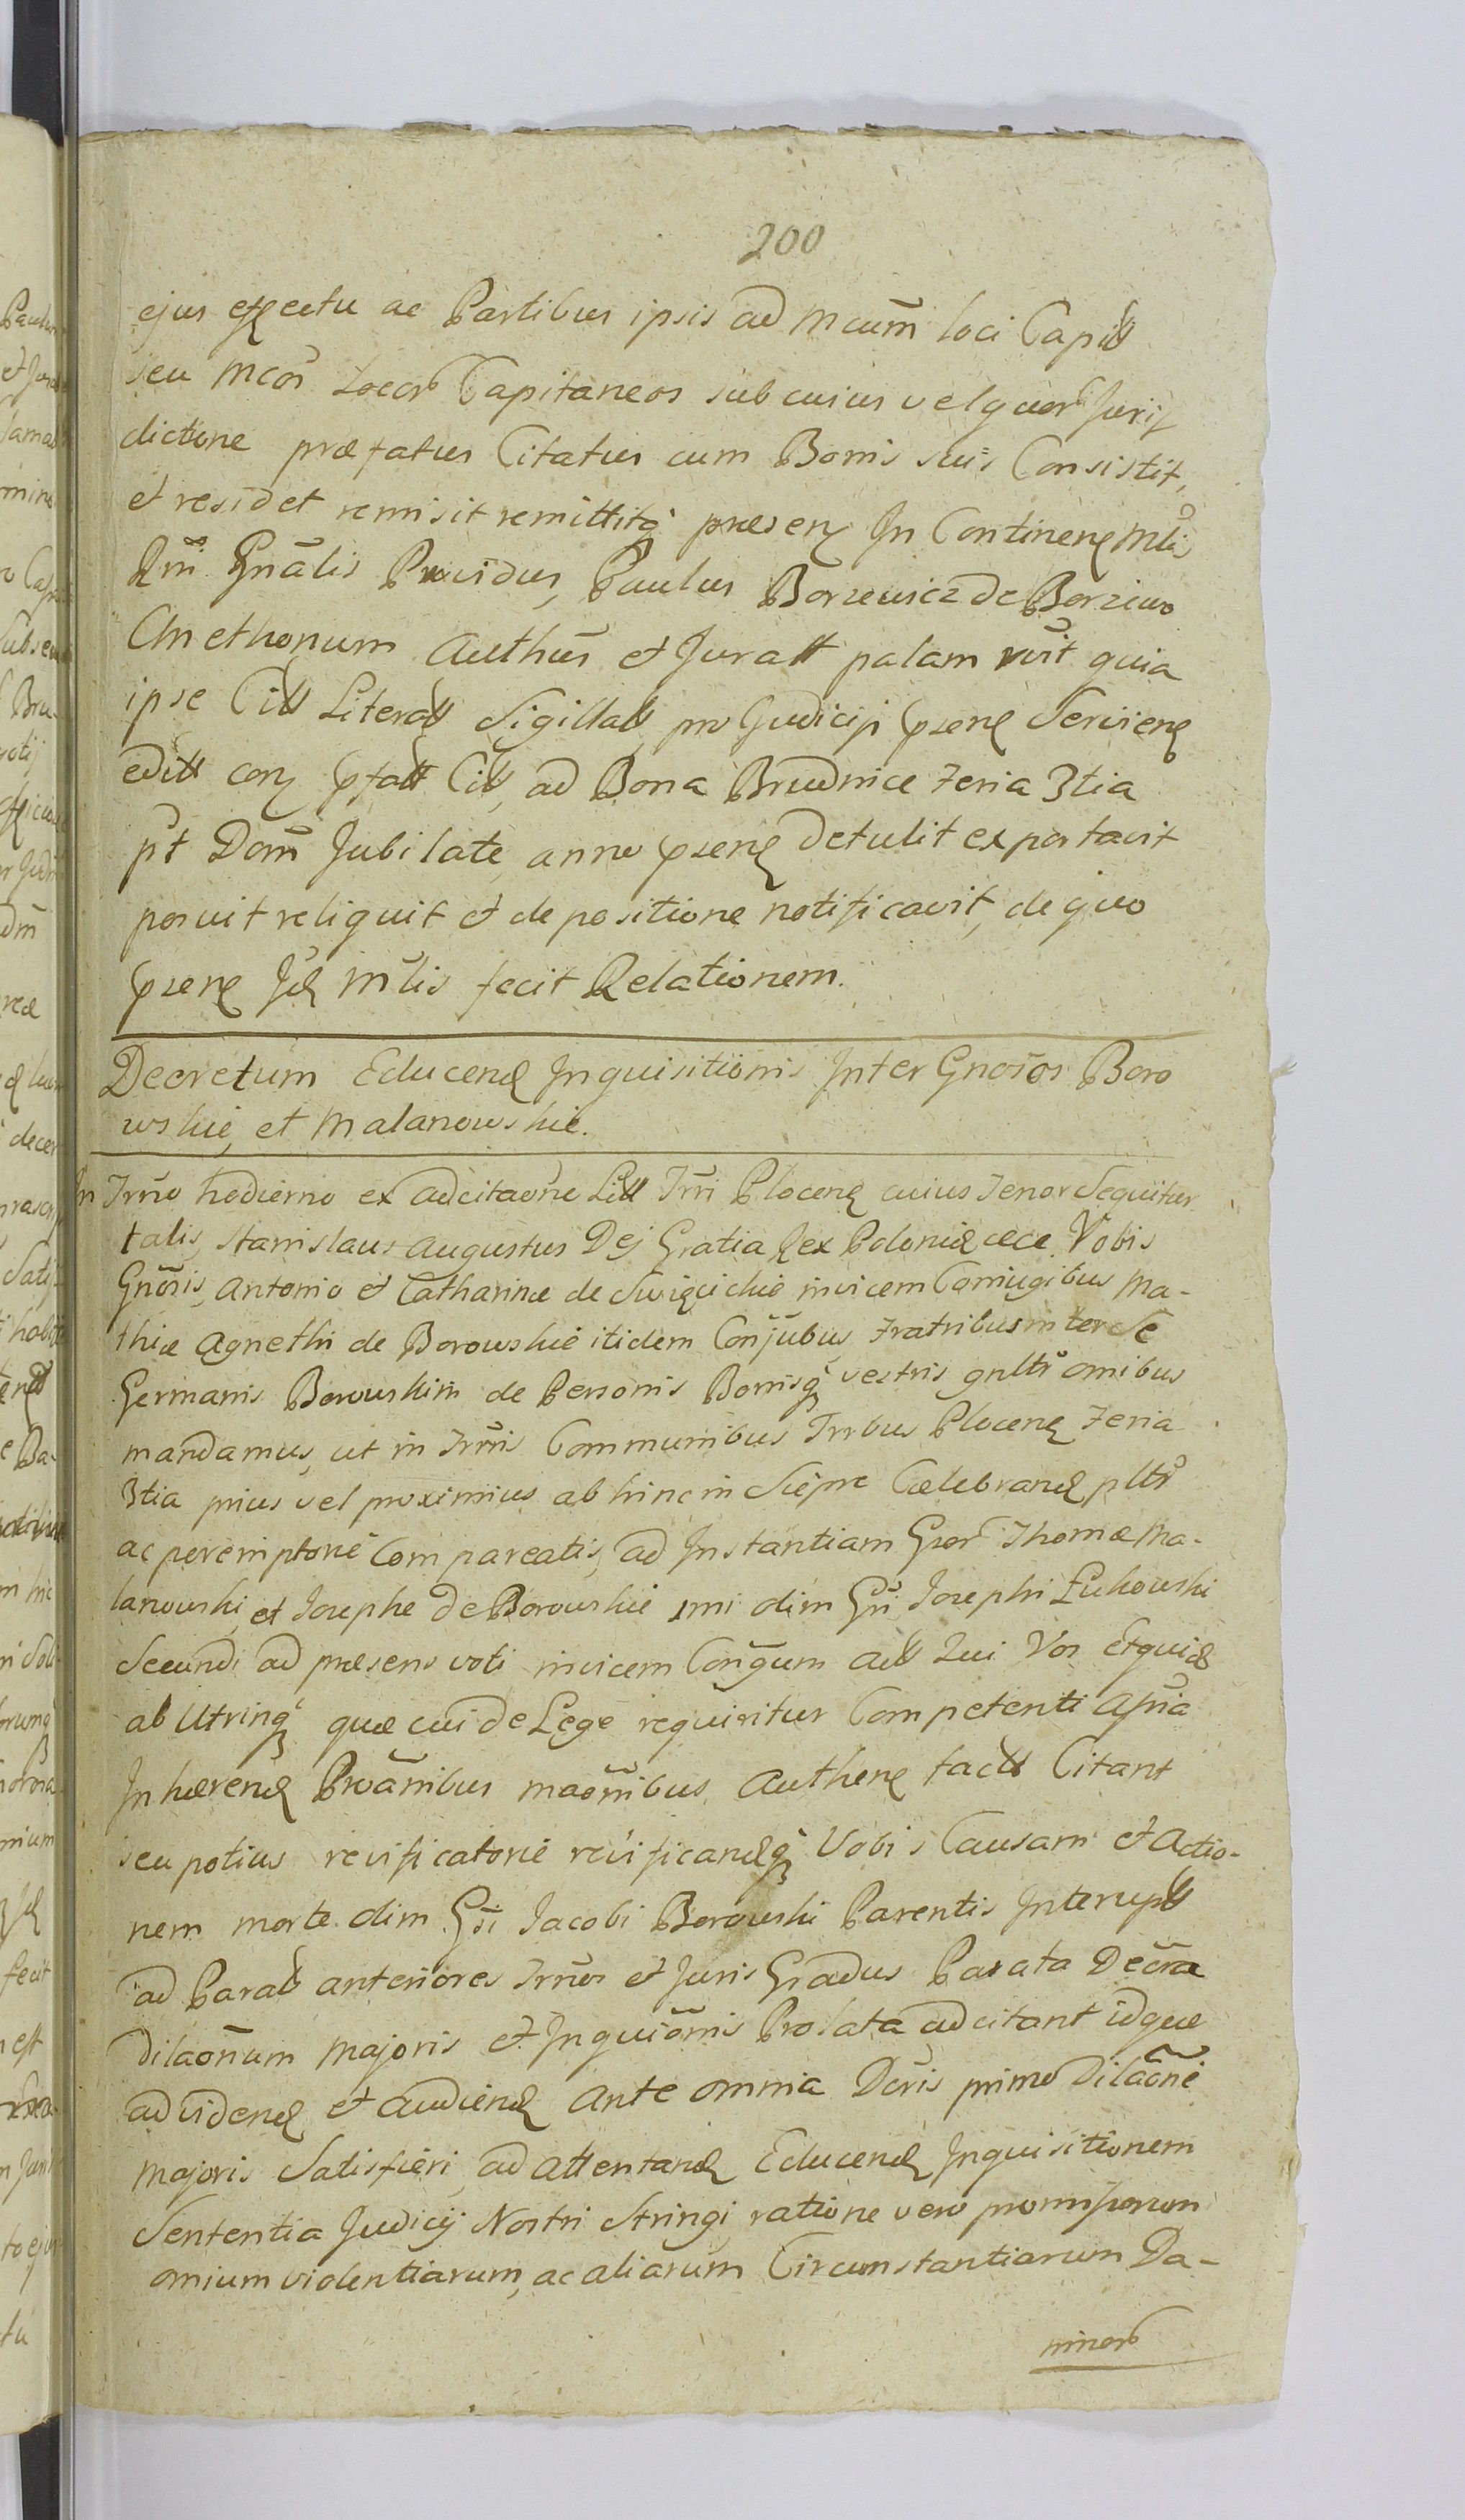 200
ejus effectu ac Partibus ipsis ad Mcum̄ loci Capitt
seu Mcos̄ Locor Capitaneos sub cuius vel quor Juris
dictione præfatus Citatus cum Bonis suis Consistit,
et residet remisit remittitq̃ præsen In Continen Mlis
Rni Gnālis Providus, Paulus Borzewicz de Borzewo
Cmethonum Authūs et Juratt palam rūit quia
ipse Citt Literatt Sigillatt pro Judicij psenę Servienę
editt con pfatt Citt, ad Bona Brudnice Feria 3tia
pt Dom̄ Jubilate, anno psenę detulit exportavit
posuit reliquit et de positione notificavit, de quo
psenę Jd Mlis fecit Relationem.
Decretum Educend Inquisitionis Inter Gnosos Boro
wskie, et Malanowskie.
In Trm̄o hodierno ex adcitaōne Litt Trri Plocenę cuius Tenor Sequitur
talis, Stanislaus Augustus Dej Gratia Rex Poloniæ ccc Vobis
Gnōsis, Antonio et Catharinæ de Swięcickie invicem Coniugibus Ma-
thiæ Agnethi de Borowskie itidem Conjubus, Fratribus inter Se
Germanis Borowskim de Personis Bonisq̃ vestris gnltr omibus
mandamus, ut in Trmis Communibus Trrbus Plocenę Feria
3tia prius vel proximius ab hinc in Sierpc Cœlebrand pltr
ac peremptorie Compareatis, ad Instantiam Gsor Thomæ Ma-
lanowski, et Josephæ de Borowskie 1mi olim Gsi Josephi Łukowski
Secundi ad præsens voti invicem Congum Att Qui Vos Etquid
ab Utrinq̃ quæ cui de Lege requiritur Competenti Assia
Inhærend Proānibus maōnibus Authenę tactt Citant
seu potius reificatorie reificandq̃ Vobis Causam et Actio-
nem morte olim Gsi Jacobi Borowski Parentis Interuptt
ad Paratt anteriores Trmos et Juris Gradus Parata Decra
dilaōnum majoris et Inquiōnis Prolata adcitant idque
ad videnę et Audienę ante omnia Decris primo Dilaōnē
majoris Satisfieri, ad attentand Educend Inquisitionem
Sententia Judicij Nostri Stringi, ratione vero promissorum
omium violentiarum, ac aliarum Circumstantiarum Da-
minor